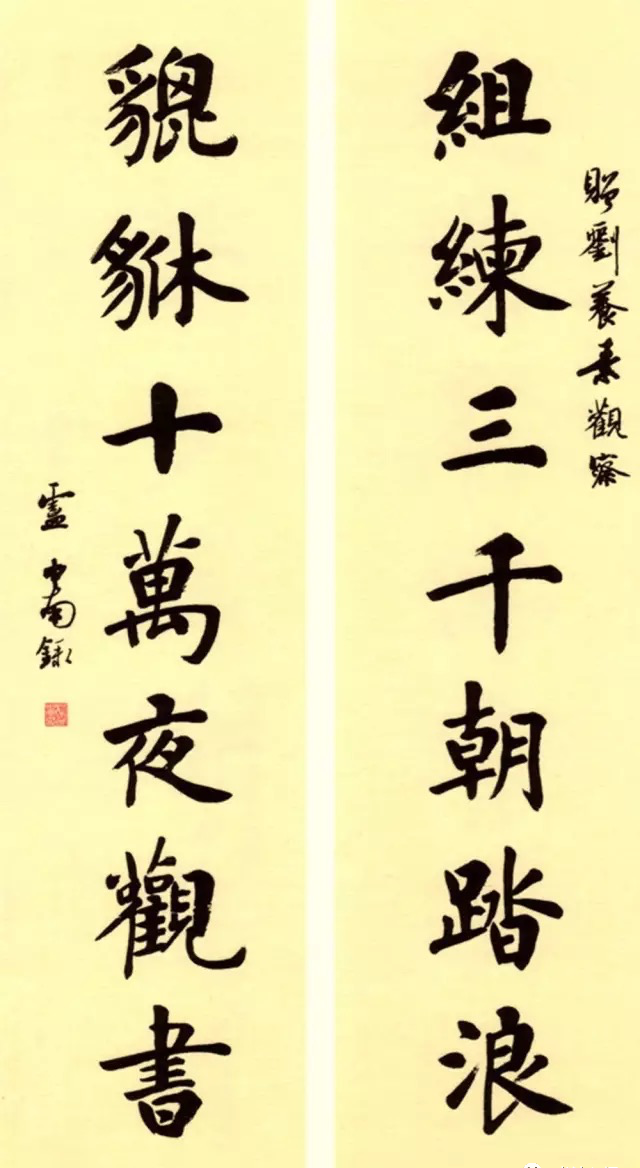 贈劉養素觀察
組練三千朝踏浪
貔貅十萬夜觀書
盧中南錄